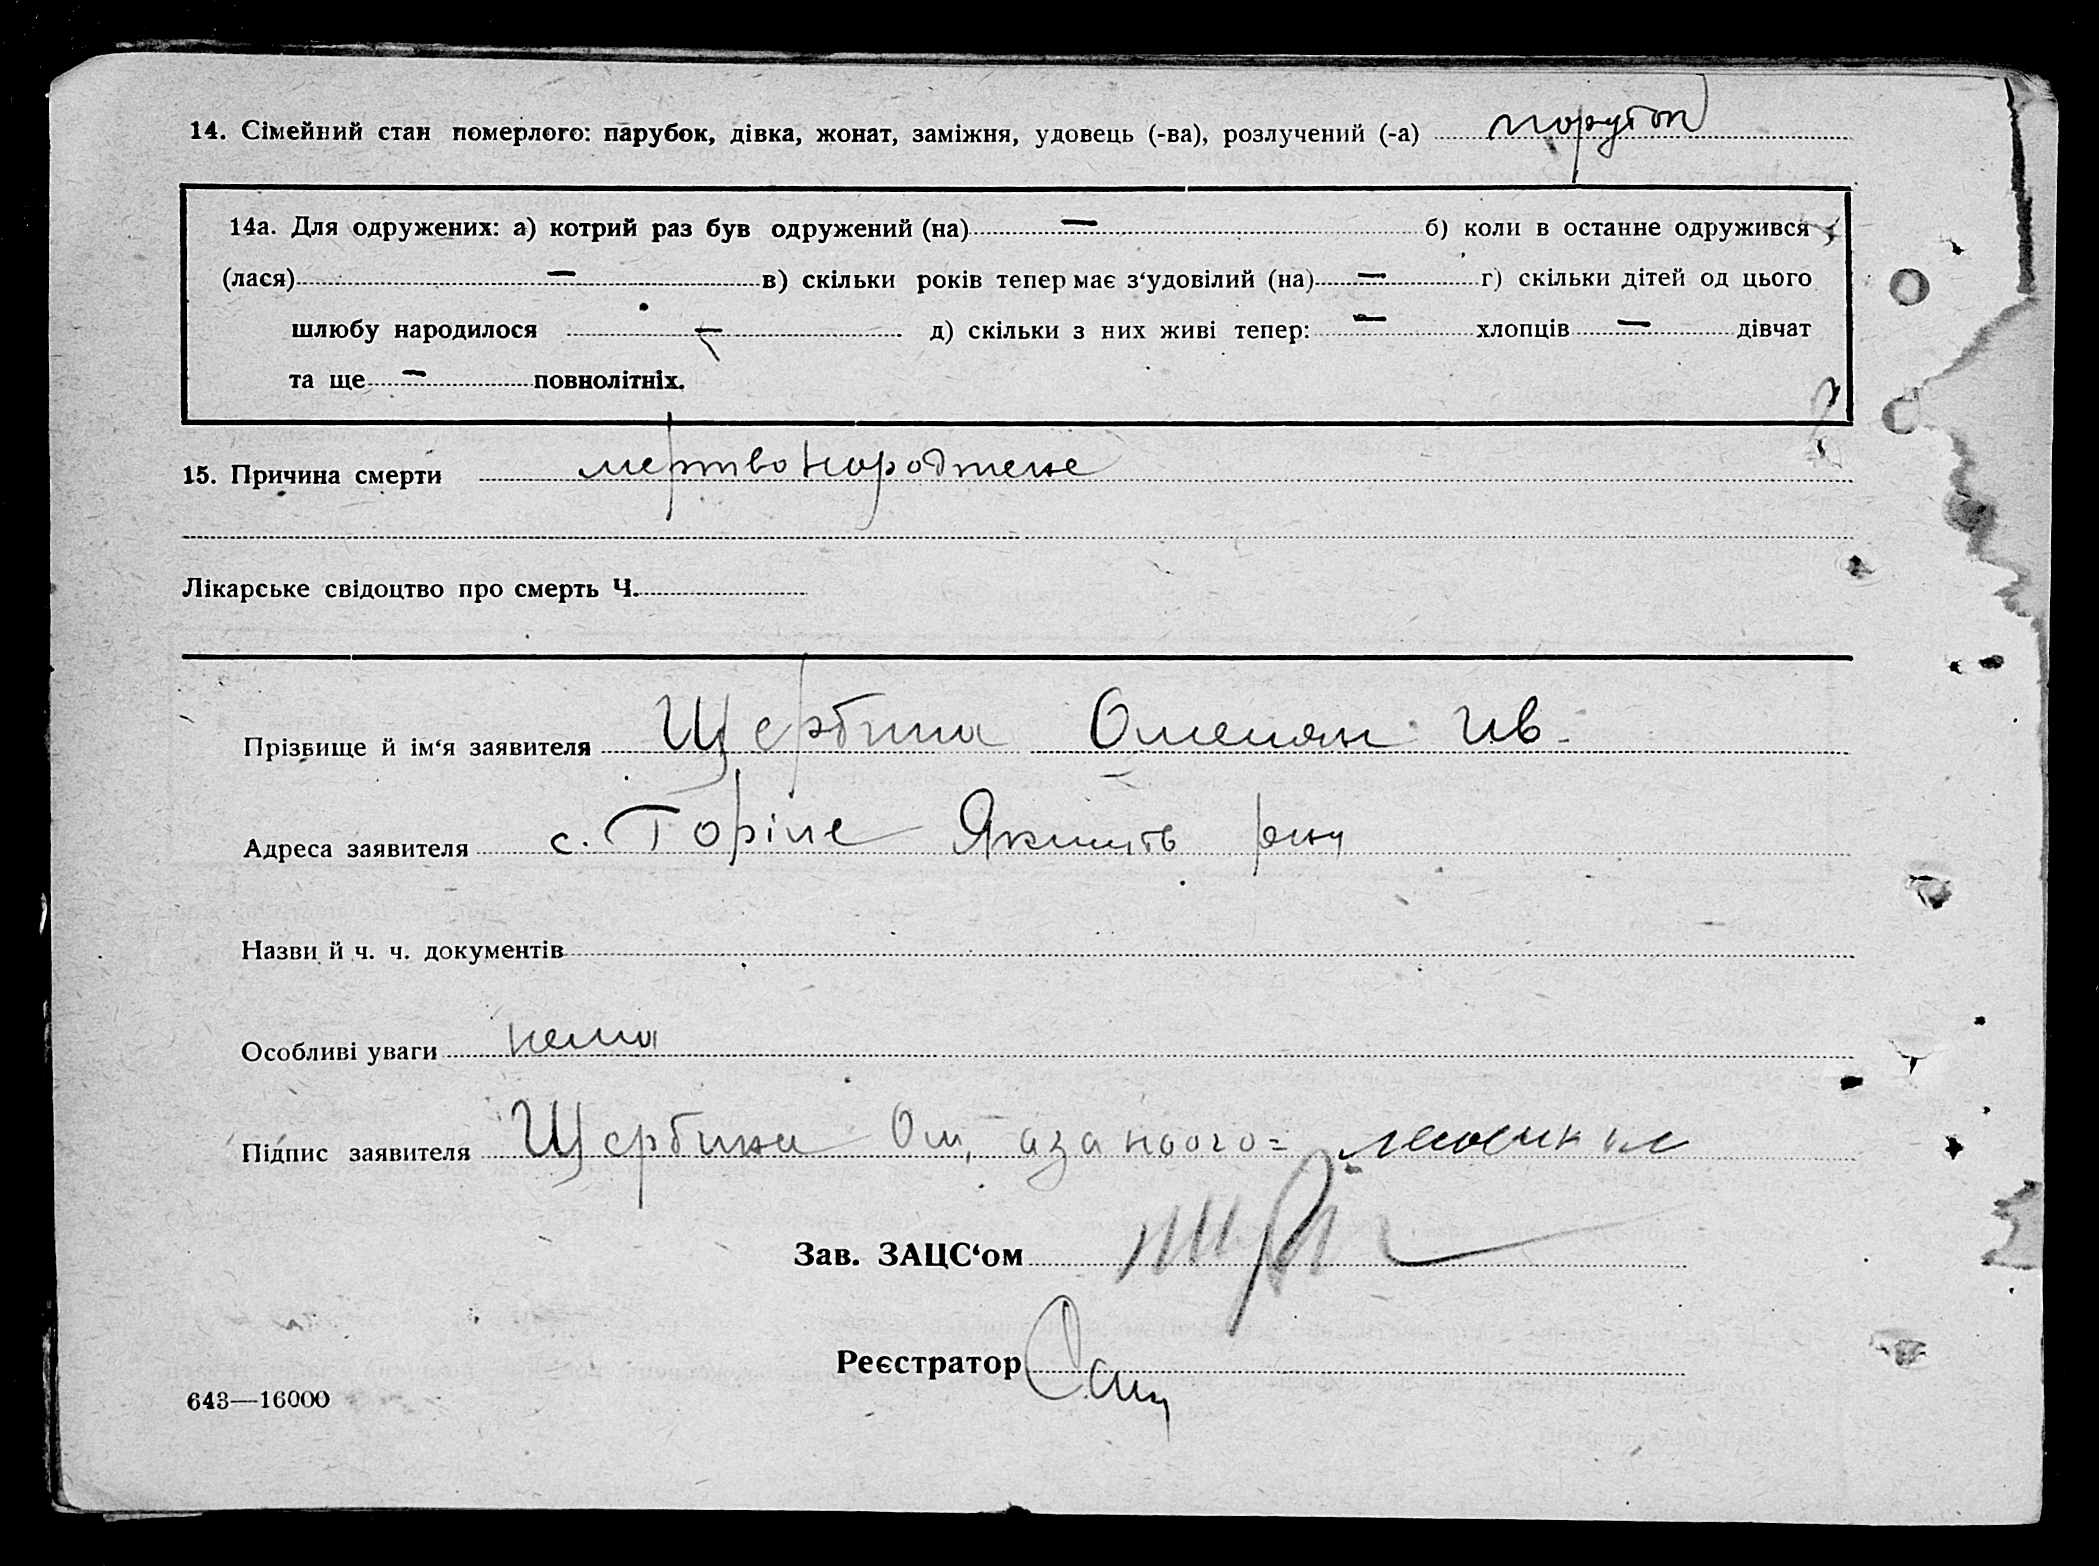 14. Сімейний стан померлого: парубок, дівка, жонат, заміжня, удовець (-ва), розлучений (-а)
14а. Для одружених: а) котрий раз був одружений (на) — б) коли в останне одружився
(лася) — в) скільки років тепер має з‘удовілий (на) — г) скільки дітей од цього
шлюбу народилося — д) скільки з них живі тепер: — хлопців — дівчат
та ще — повнолітніх.
15. Причина смерти мертвонароджене
Лікарське свідоцтво про смерть Ч.
Прізвище й ім‘я заявителя Щербина Омелян Ив.
Адреса заявителя с. Горіле
Назви й ч. ч. документів
Особливі уваги нема
Підпис заявителя Щербина Ом,
Зав. ЗАЦС‘ом
Реєстратор
643—16000